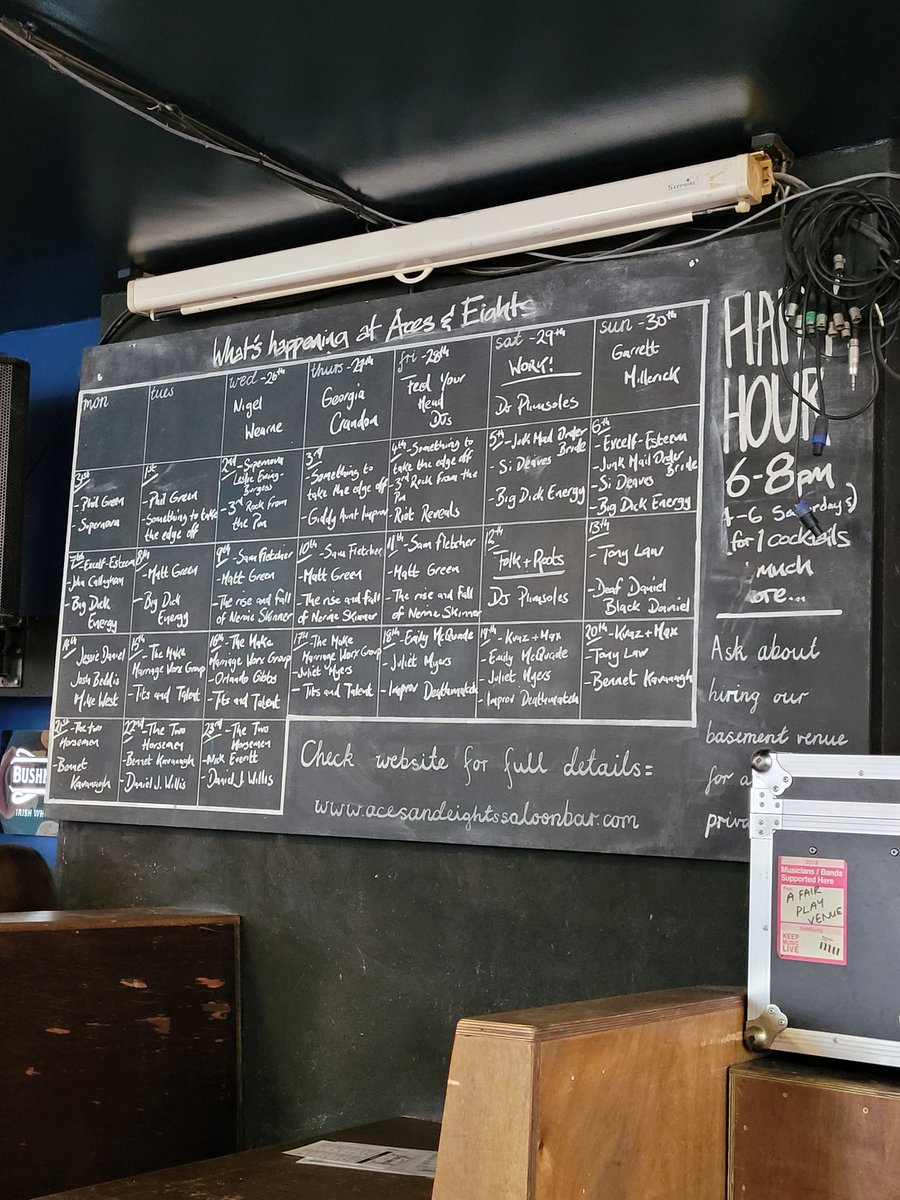 SAPPHIRE
What's happening at Aces & Eights
mon
tues
wed - 26th
Nigel
Wearne
thurs - 27th
Georgia
Crandon
fri - 28th
Feed Your
Head
DJs
sat - 29th
WORK!
DJ Plimsoles
sun - 30th
Garrett
Millerick
31st
- Phil Green
- Supernova
1st
- Phil Green
- Something to take
the edge off
2nd - Supernova
- Leslie Ewing-
Burgess
- 3rd Rock From
the Pan
3rd
- Something to
take the edge off
- Giddy Aunt Improv
4th - Something to
take the edge off
- 3rd Rock From the
Pan
- Riot Reveals
5th - Junk Mail Order
Bride
- Si Deaves
- Big Dick Energy
6th
- Excelf-Esteem
- Junk Mail Order
Bride
- Si Deaves
- Big Dick Energy
7th - Excelf-Esteem
- John Callaghan
- Big Dick
Energy
8th
- Matt Green
- Big Dick
Energy
9th - Sam Fletcher
- Matt Green
- The rise and fall
of Nernie Skinner
10th - Sam Fletcher
- Matt Green
- The rise and fall
of Nernie Skinner
11th - Sam Fletcher
- Matt Green
- The rise and fall of
Nernie Skinner
12th
Folk + Roots
DJ Plimsoles
13th
- Tony Law
- Deaf Daniel
Black Daniel
14th
Jessie Daniel
Josh Beddis
Mike West
15th - The Make
Marriage Worx Group
- Tits and Talent
16th - The Make
Marriage Worx Group
- Orlando Gibbs
- Tits and Talent
17th - The Make
Marriage Worx Group
- Juliet Myers
- Tits and Talent
18th - Emily McQuade
- Juliet Myers
- Improv Deathmatch
19th - Kraz + Max
- Emily McQuade
- Juliet Myers
- Improv Deathmatch
20th - Kraz + Max
- Tony Law
- Bennet Kavanagh
21st - The two
Horsemen
- Bennet
Kavanagh
22nd - The Two
Horsemen
- Bennet Kavanagh
- Daniel J. Willis
23rd - The Two
Horsemen
- Nick Everitt
- Daniel J. Willis
Check website for full details =
www.acesandeightssaloonbar.com
HAP
HOUR
6-8pm
4-6 Saturdays)
for 1 cocktails
much
ore...
Ask about
hiring our
basement venue
for a
priva
BUSHM
IRISH WH
2018
Musicians / Bands
Supported Here
A FAIR
PLAY
VENUE
KEEP
MUSIC
LIVE